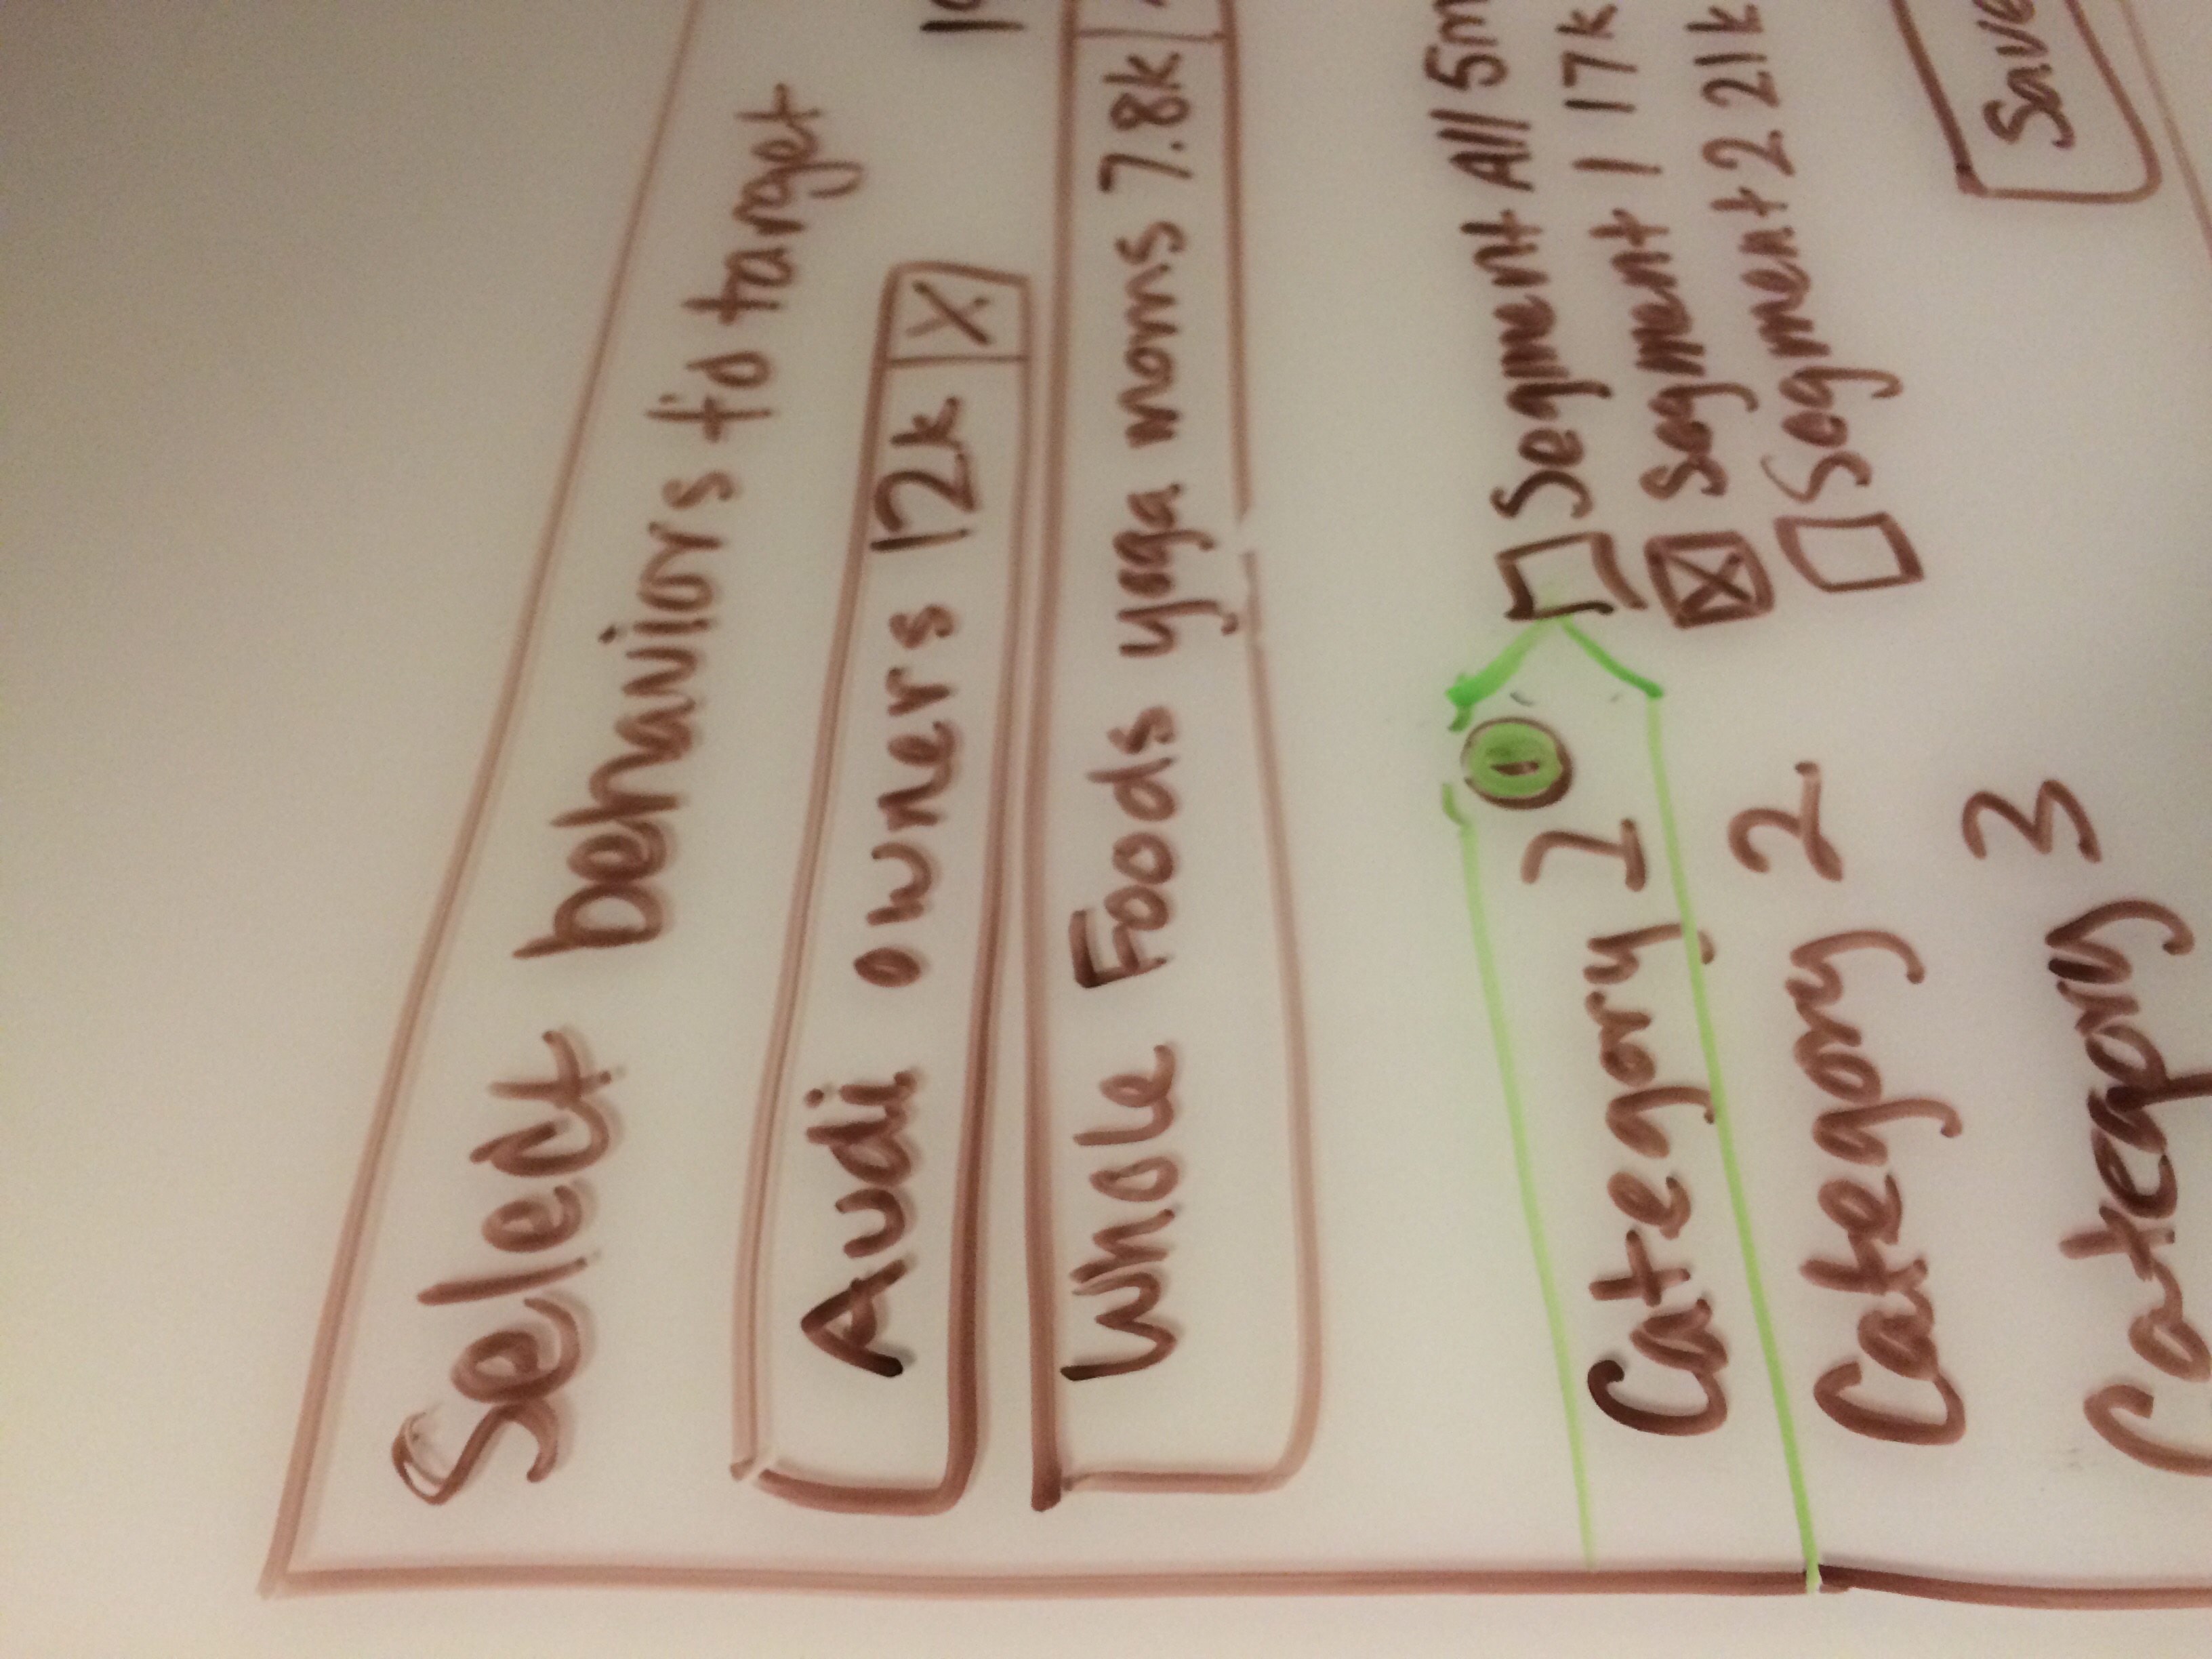 Select behaviors to target
Audi owners 12k X
Whole Foods yoga moms 7.8k
Category 1 1
Category 2
Category 3
Segment All 5m
Segment 1 17k
Segment 2 21k
Save